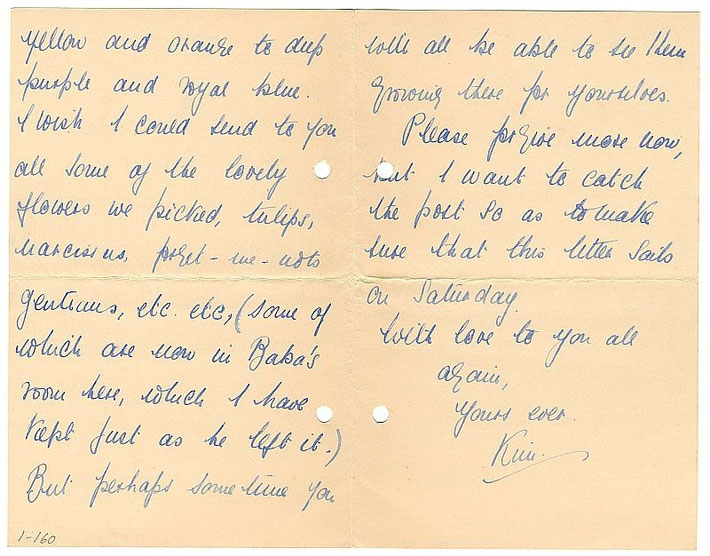 yellow and orange to deep
purple and royal blue.
I wish I could send to you
all some of the lovely
flowers we picked, tulips,
narcissus, forget-me-nots
gentians, etc. etc, (some of
which are now in Baba's
room here, which I have
kept just as he left it.)
But perhaps some time you
1-160
will all be able to see them
growing there for yourselves.
Please forgive more now,
but I want to catch
the post so as to make
sure that this letter sails
on Saturday.
With love to you all
again,
Yours ever.
Kim.